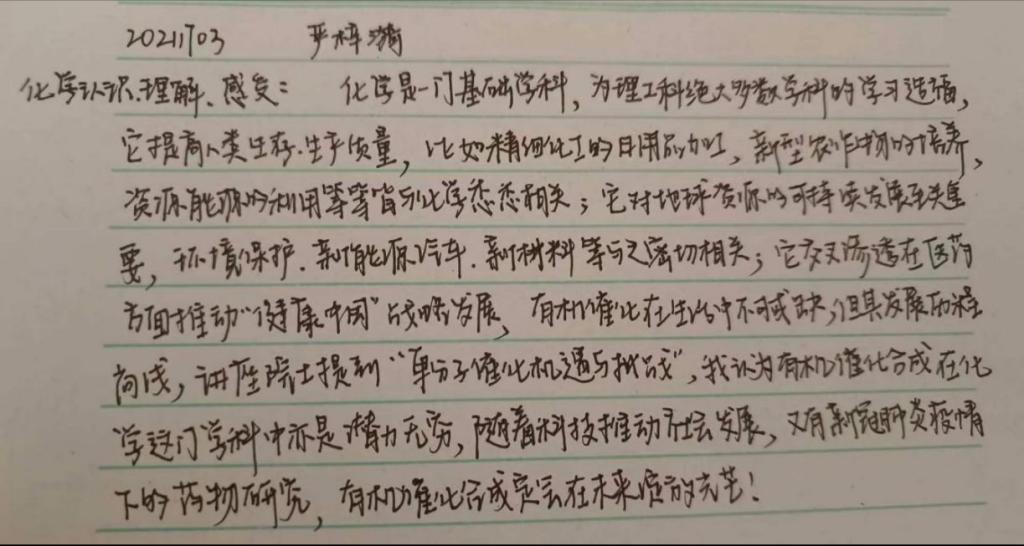 20211703 严梓漪
化学认识、理解、感受： 化学是一门基础学科，为理工科绝大多数学科的学习造福，
它提高人类生存、生产质量，比如精细化工的日用品加工，新型农作物的培养，
资源能源的利用等等皆与化学悉悉相关；它对地球资源的可持续发展至关重
要，环境保护、新能源汽车、新材料等与之密切相关；它交叉渗透在医药
方面推动“健康中国”战略发展，有机催化在生活中不可或缺，但其发展历程
尚浅，讲座院士提到“单分子催化机遇与挑战”，我认为有机催化合成在化
学这门学科中亦是潜力无穷，随着科技推动社会发展，又有新冠肺炎疫情
下的药物研究，有机催化合成定会在未来绽放光芒！